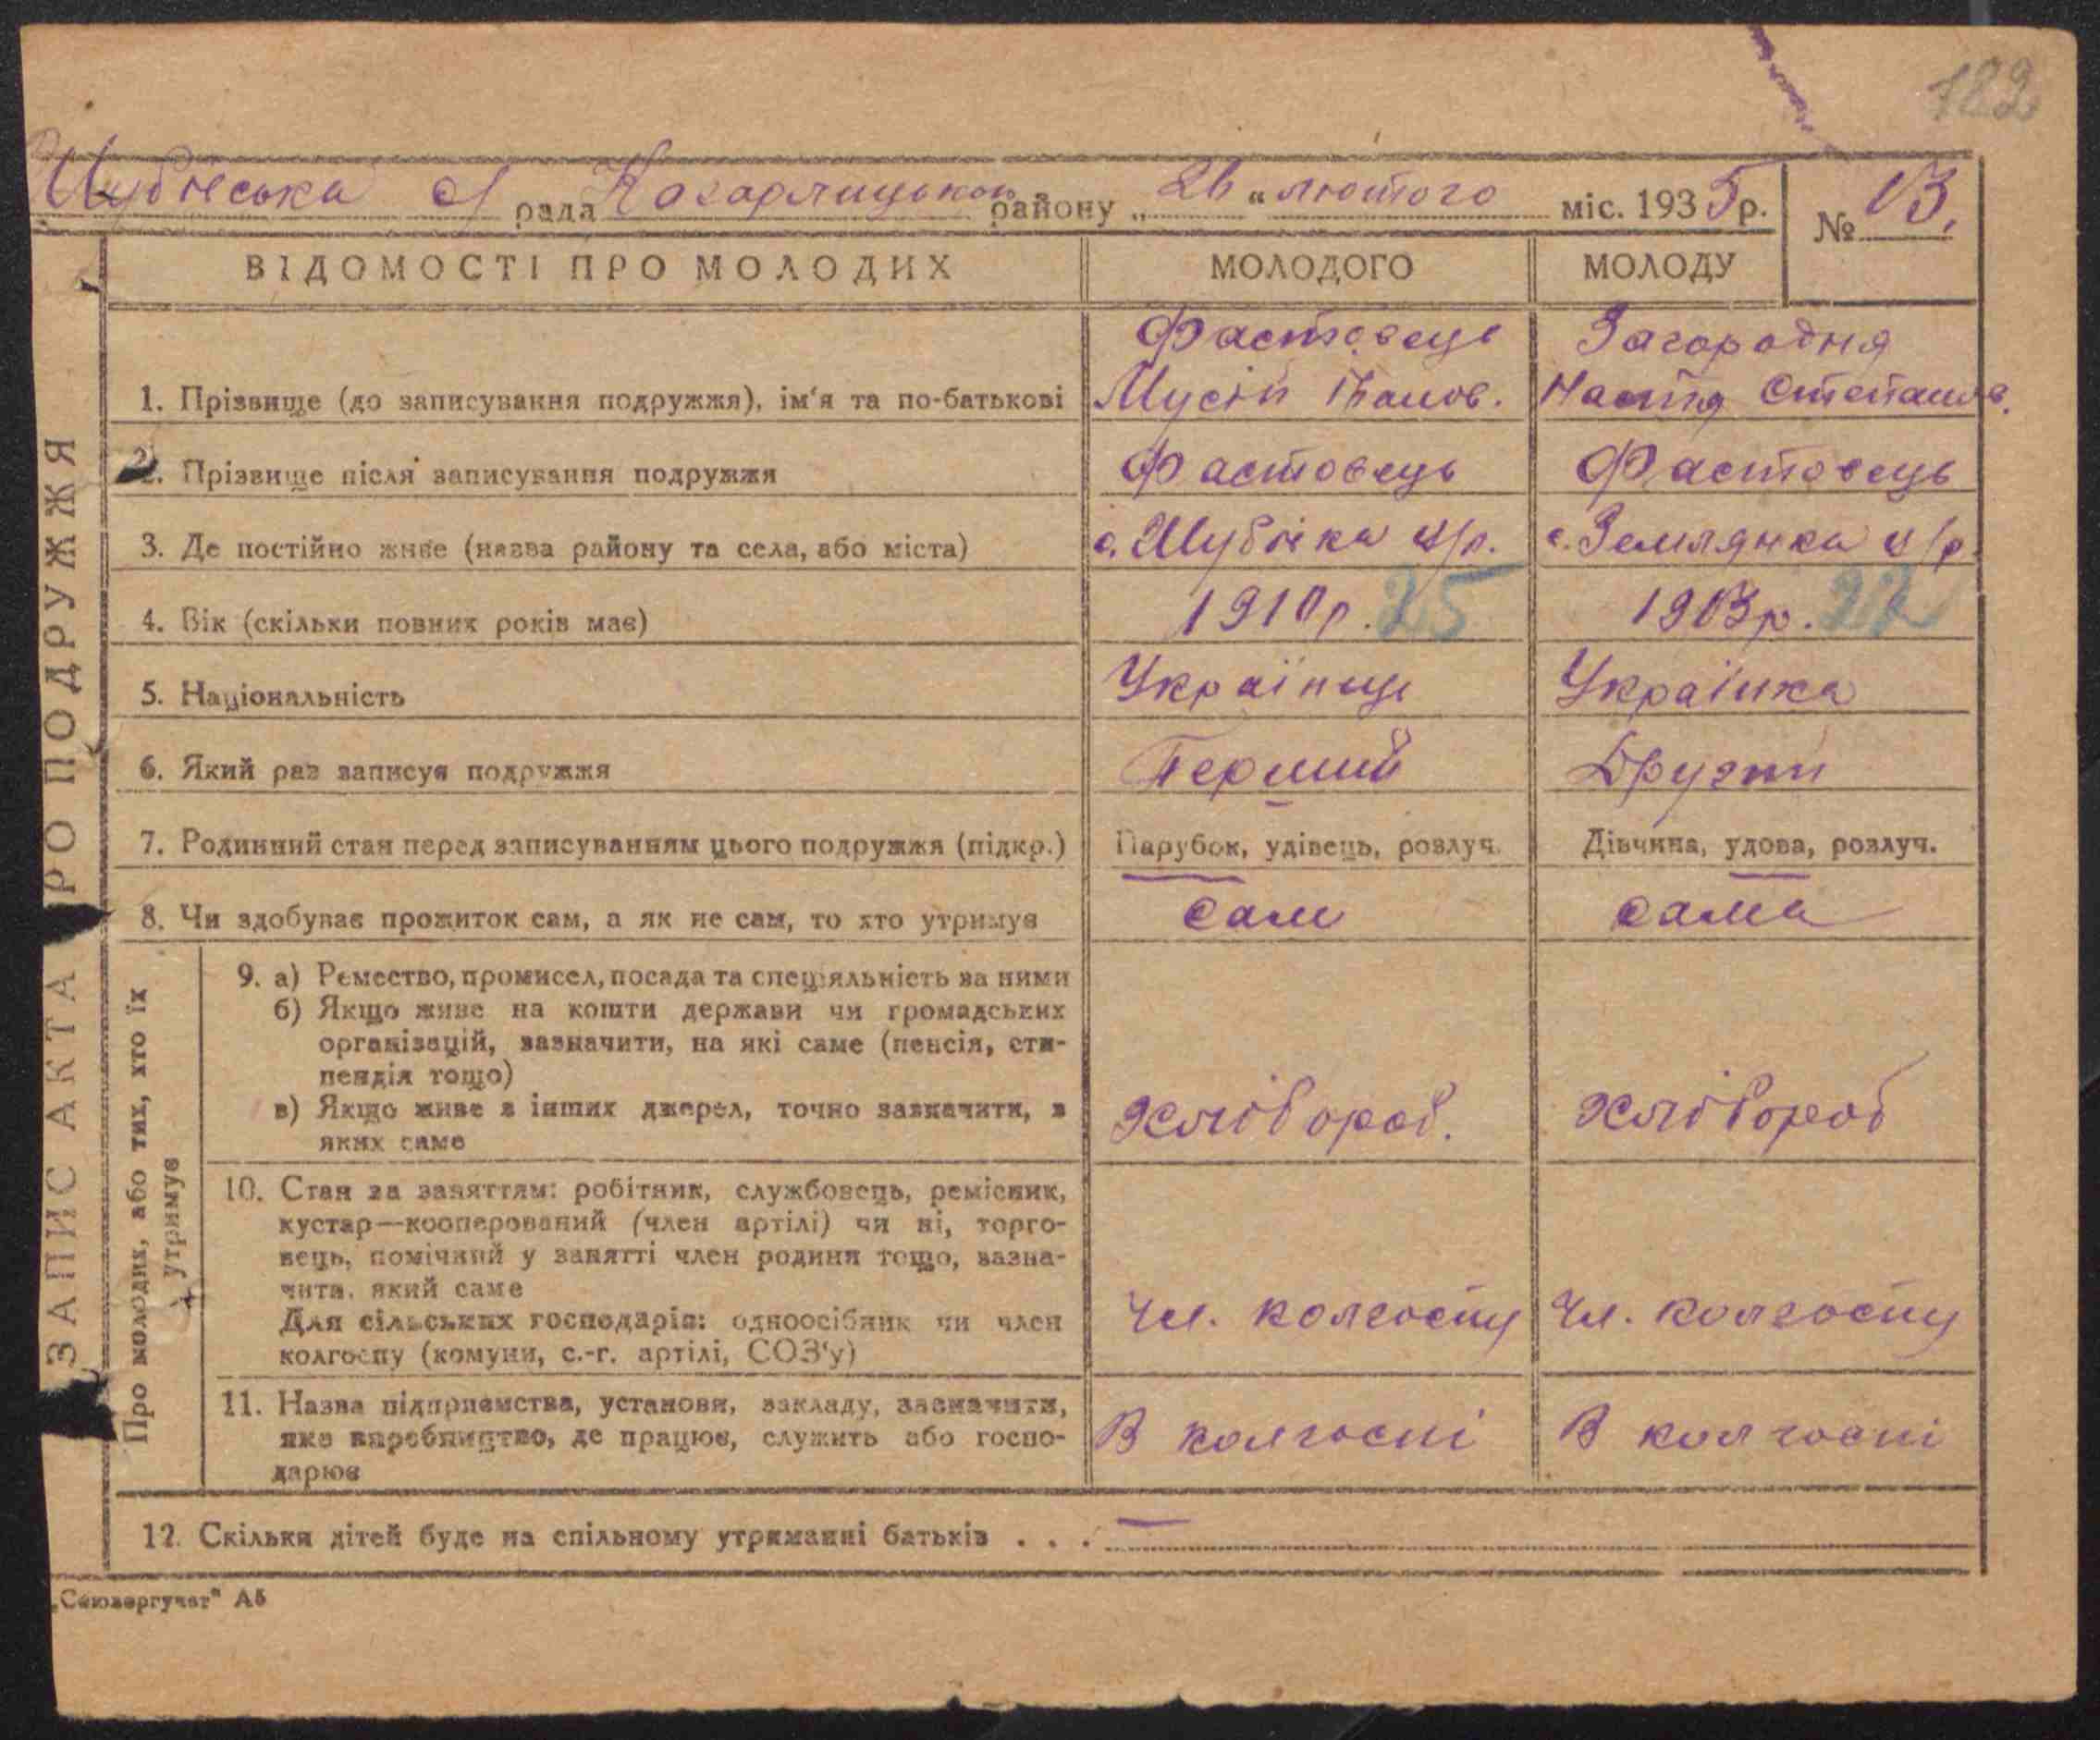 182
Шубієська с/рада Кагарлицьком району „26“ лютого міс. 1935 р. № 13.
ВІДОМОСТІ ПРО МОЛОДИХ МОЛОДОГО МОЛОДУ
ЗАПИС АКТА ПРО ПОДРУЖЖЯ
1. Прізвище (до записування подружжя), ім'я та по-батькові Фастовець Мусій Іванов. Загородня Настя Степанов.
2. Прізвище після записування подружжя Фастовець Фастовець
3. Де постійно живе (назва району та села, або міста) с. Шубієка с/р. с. Землянка с/р.
4. Вік (скільки повних років має) 1910р. 25 1903р.
5. Національність Українець Українка
6. Який раз записує подружжя Перший Другий
7. Родинний стан перед записуванням цього подружжя (підкр.) Парубок, удівець, розлуч. Дівчина, удова, розлуч.
8. Чи здобуває прожиток сам, а як не сам, то хто утримує сам сама
Про молодих, або тих, хто їх утримує
9. а) Ремество, промисел, посада та спеціяльність за ними
б) Якщо живе на кошти держави чи громадських
організацій, зазначити, на які саме (пенсія, сти-
пендія тощо)
в) Якщо живе з інших джерел, точно зазначити, з
яких саме Хлібороб. Хлібороб
10. Стан за заняттям: робітник, службовець, ремісник,
кустар—кооперований (член артілі) чи ні, торго-
вець, помічний у занятті член родини тощо, зазна-
чити, який саме
Для сільських господарів: одноосібник чи член
колгоспу (комуни, с.-г. артілі, СОЗ'у) Чл. колгоспу Чл. колгоспу
11. Назва підприємства, установи, закладу, зазначити,
яке виробництво, де працює, служить або госпо-
дарює В колгоспі В колгоспі
12. Скільки дітей буде на спільному утриманні батьків . . . —
„Союзоргучет" А5